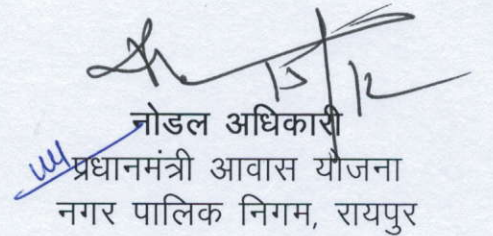 15/12
नोडल अधिकारी
प्रधानमंत्री आवास योजना
नगर पालिक निगम, रायपुर